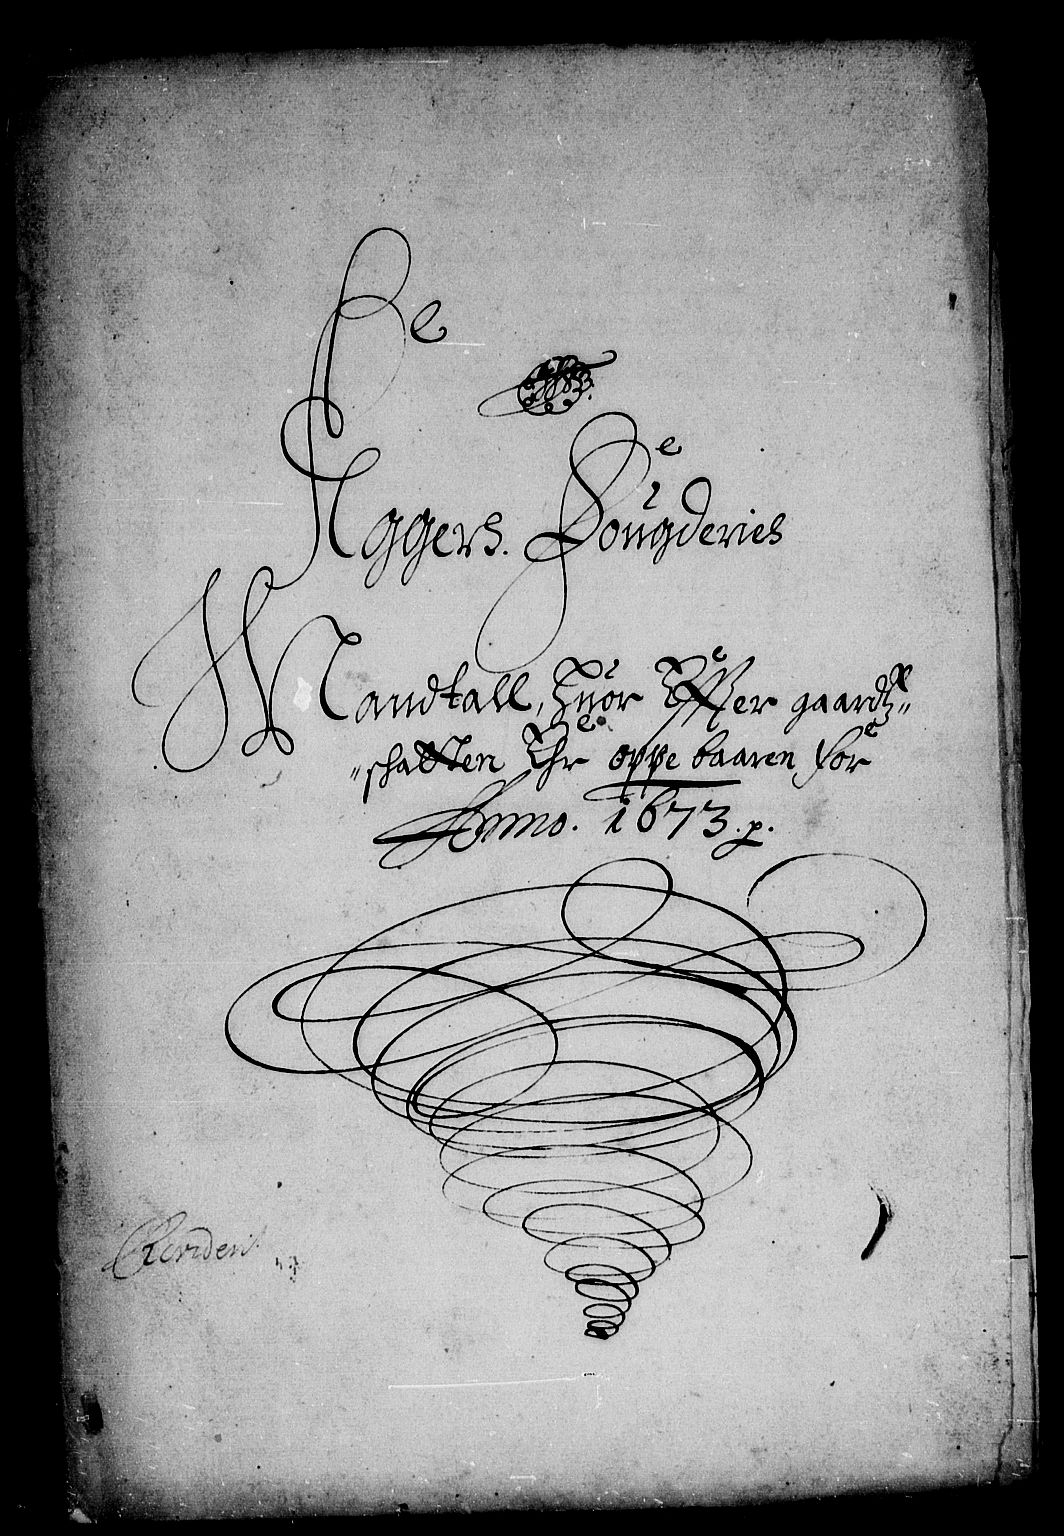 Aggers. Fougderies
Mandtall, huor Effter gaardtz„
„schatten Ehr oppe baaren for
Anno. 1673. p.